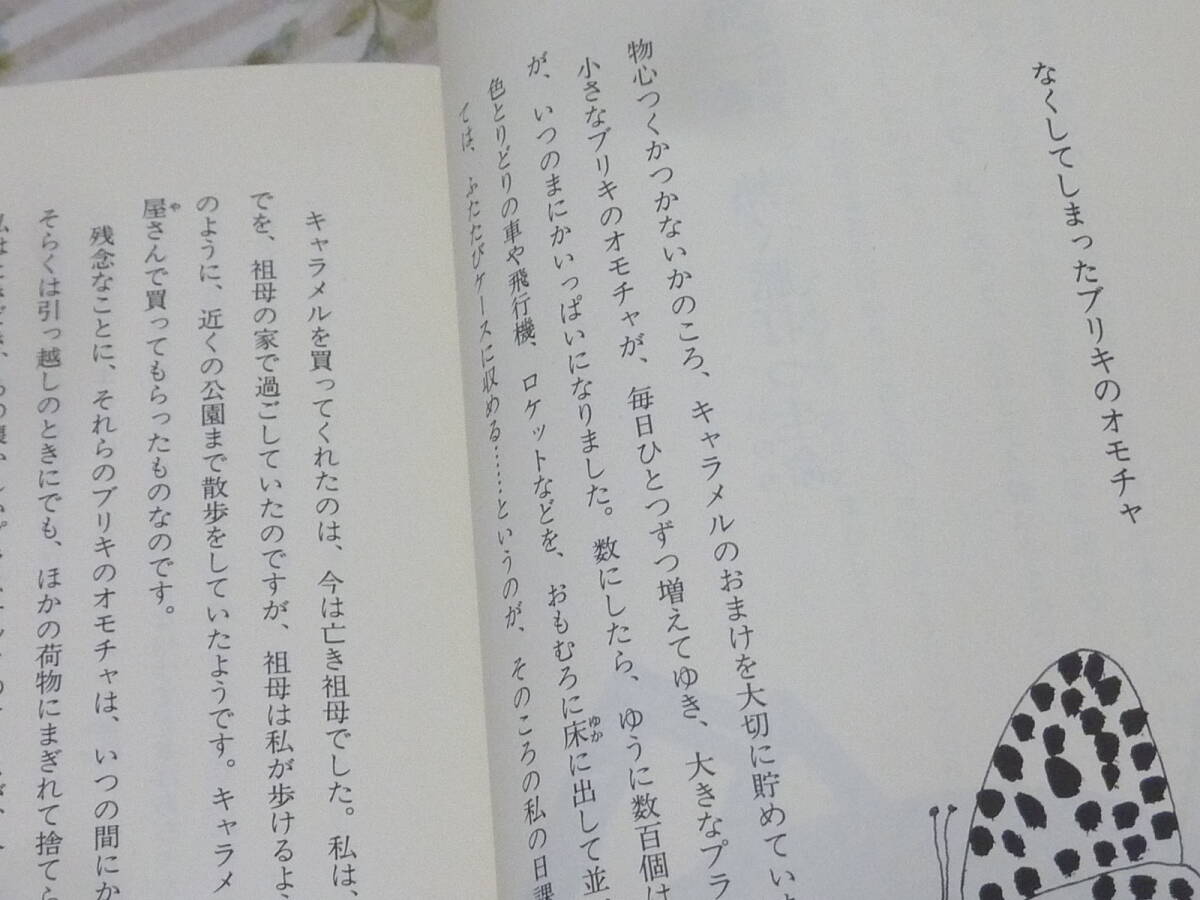 なくしてしまったブリキのオモチャ
物心つくかつかないかのころ、キャラメルのおまけを大切に貯めてい
小さなブリキのオモチャが、毎日ひとつずつ増えてゆき、大きなプラ
が、いつのまにかいっぱいになりました。数にしたら、ゆうに数百個は
色とりどりの車や飛行機、ロケットなどを、おもむろに床に出して並
ては、ふたたびケースに収める……というのが、そのころの私の日課
キャラメルを買ってくれたのは、今は亡き祖母でした。私は、
でを、祖母の家で過ごしていたのですが、祖母は私が歩けるよ
のように、近くの公園まで散歩をしていたようです。キャラメ
屋さんで買ってもらったものなのです。
残念なことに、それらのブリキのオモチャは、いつの間にか
そらくは引っ越しのときにでも、ほかの荷物にまぎれて捨てら
私は